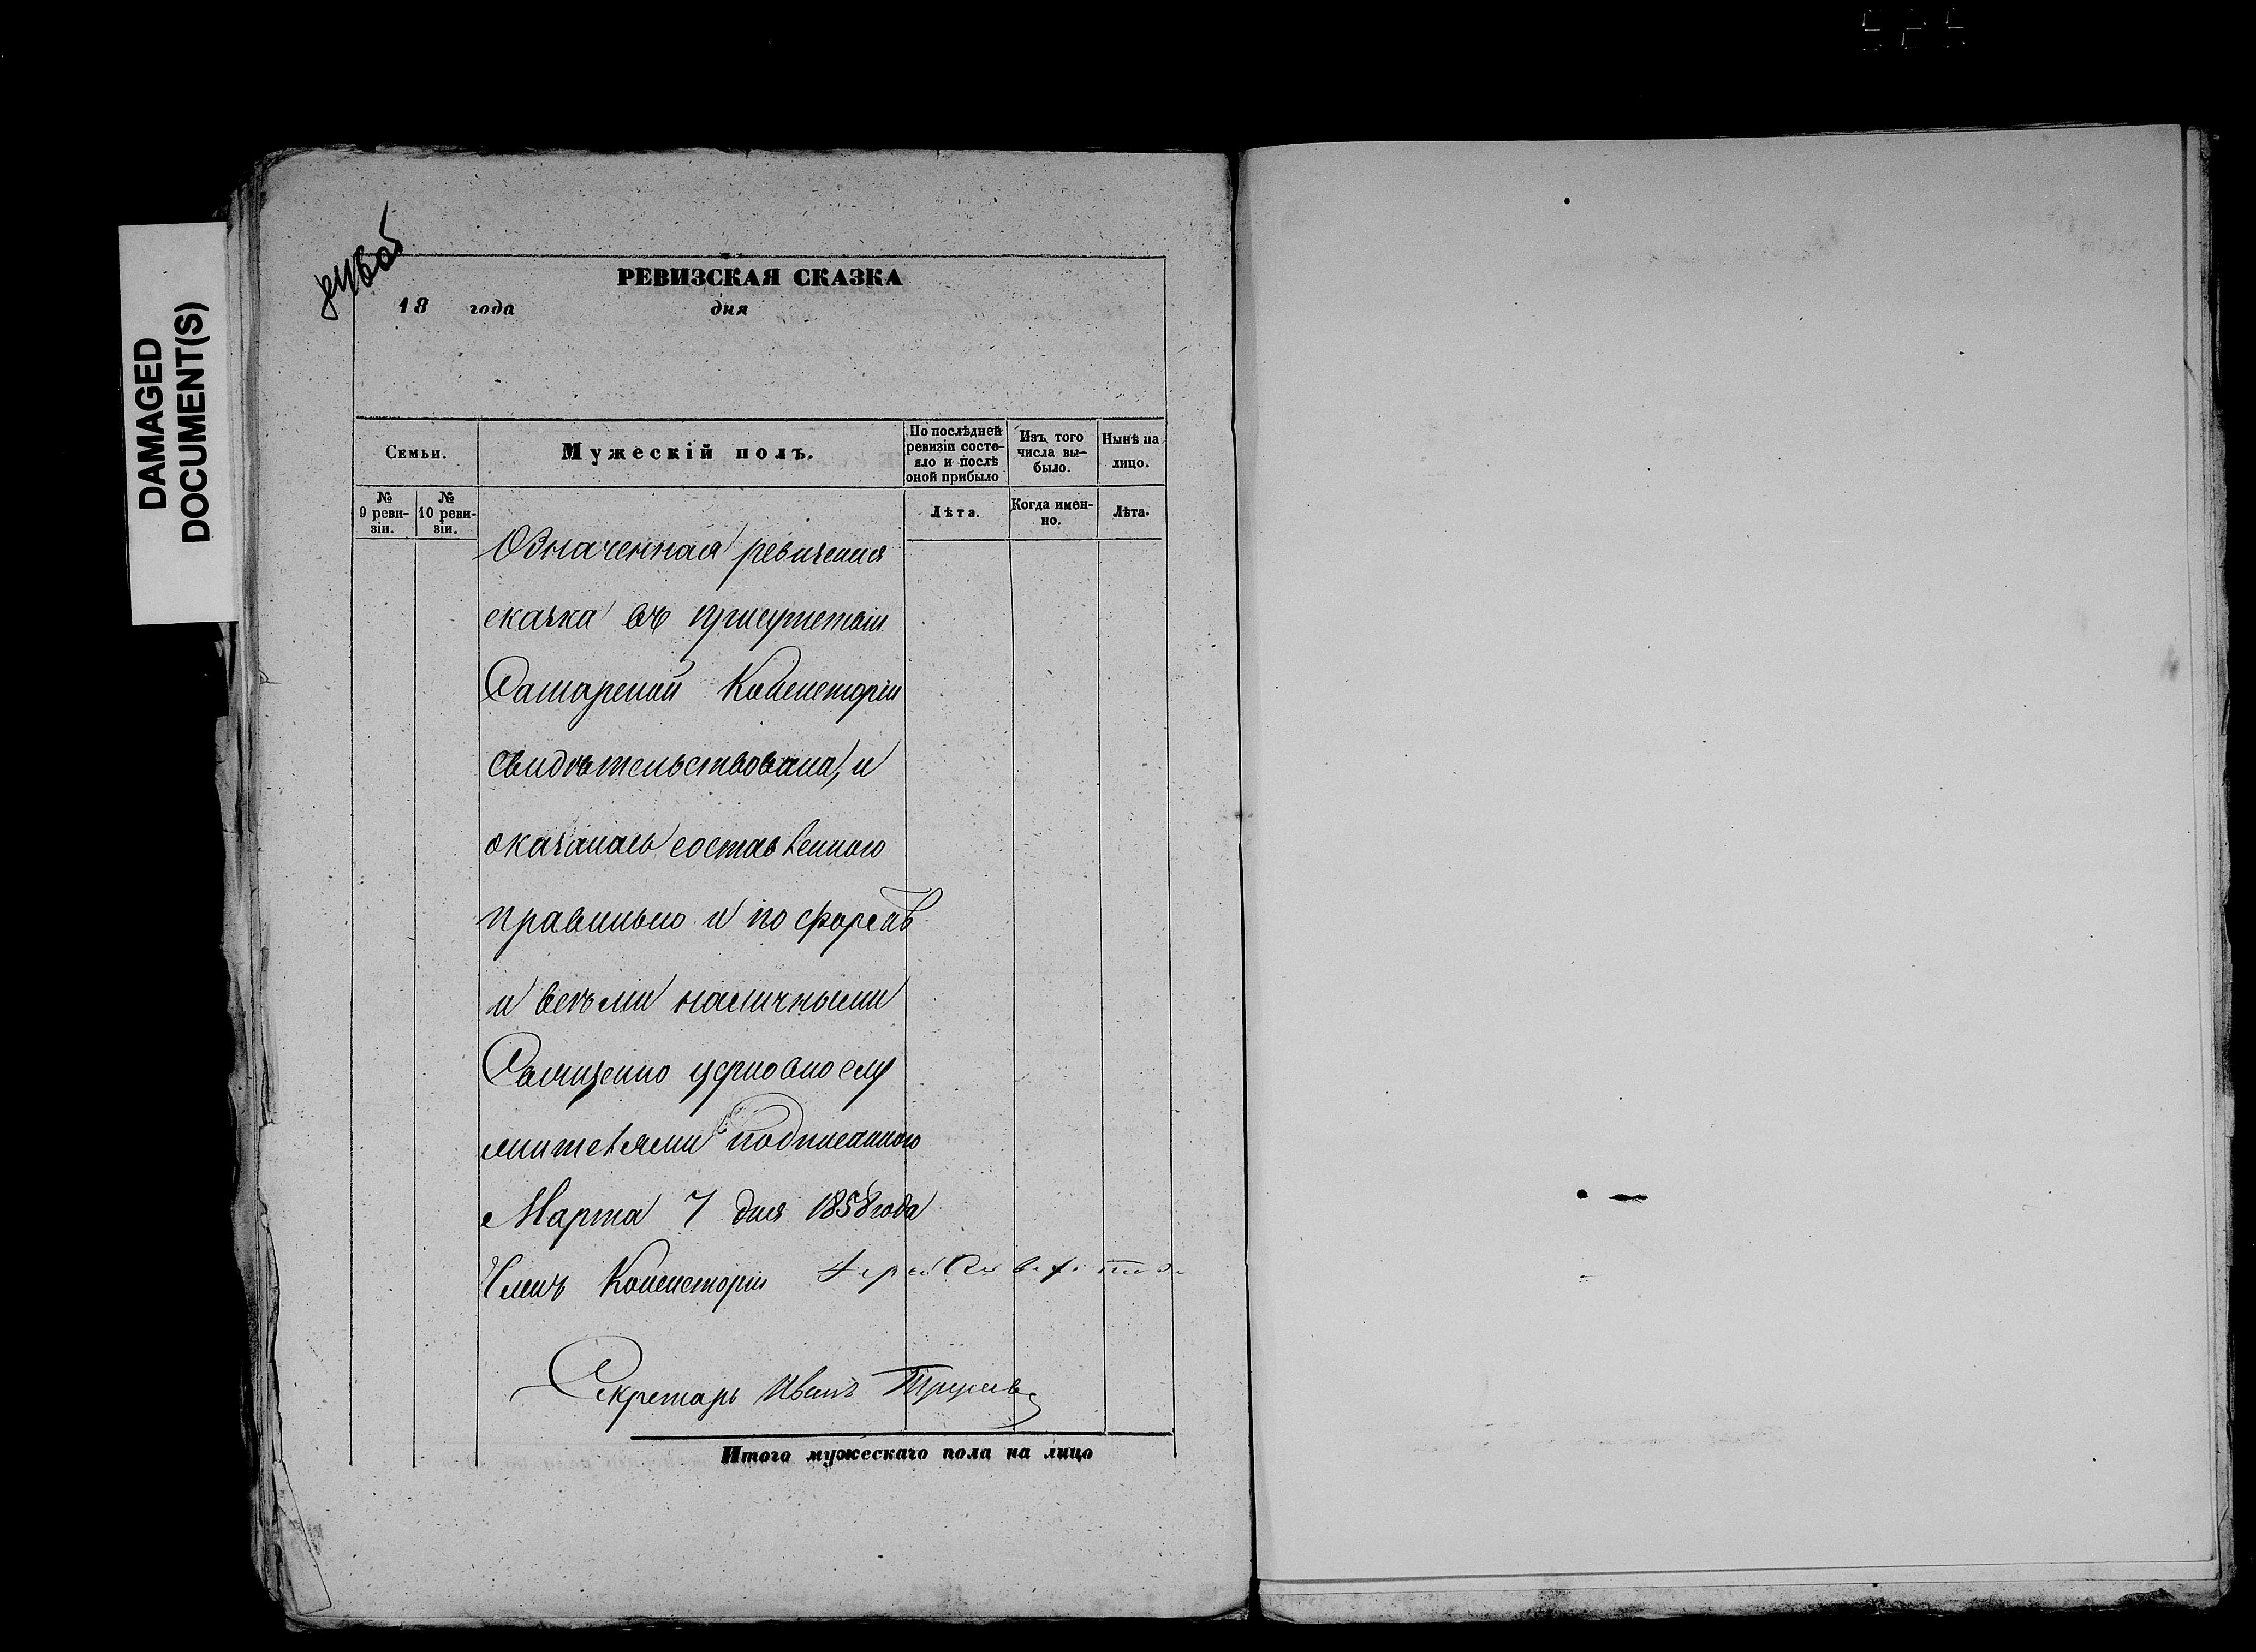 DAMAGED
DOCUMENT(S)
РЕВИЗСКАЯ СКАЗКА
18 года дня
Семьи.
Мужескій полъ.
По послѣдней
ревизіи состо-
яло и послѣ
оной прибыло
Изъ того
числа вы-
было.
Нынѣ на
лицо.
№
9 реви-
зіи.
№
10 реви-
зіи.
Лѣта.
Когда имен-
но.
Лѣта.
Означенная ревизская
сказка въ присутствіи
Самарской Консисторіи
свидѣтельствована, и
оказалась составленною
правильно и по формѣ
и всѣми наличными
Священно церковнослу
жителями подписанною
Марта 7 дня 1858 года
Членъ Консисторіи Іерей
Секретарь Иванъ
Итого мужескаго пола на лицо